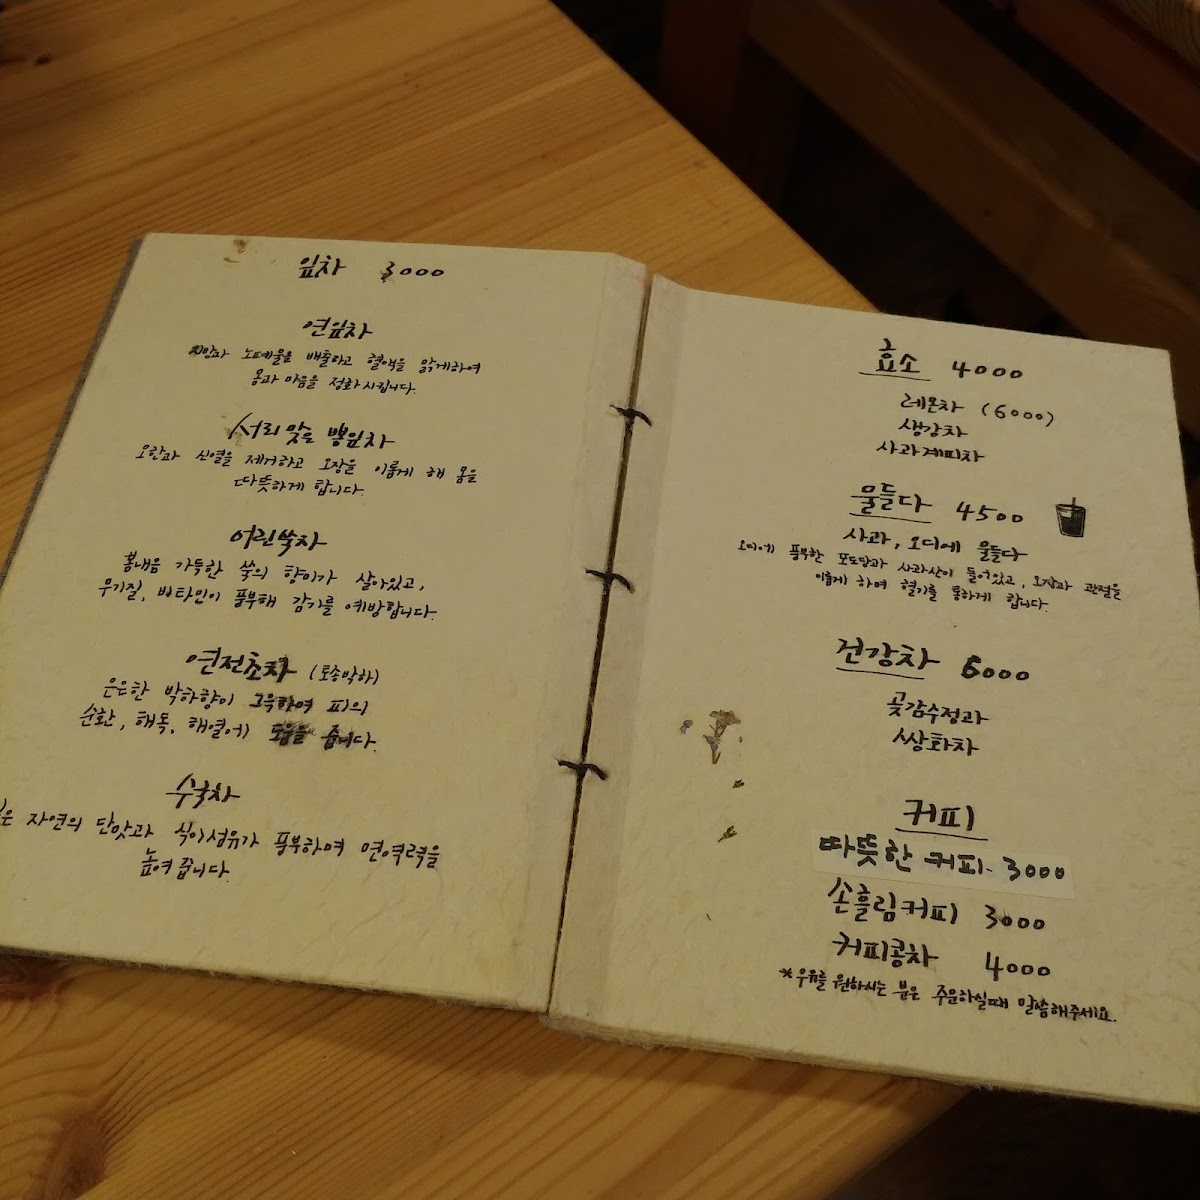 잎차 3000
연잎차
지방과 노폐물을 배출하고 혈액을 맑게하여
몸과 마음을 정화시킵니다.
서리맞은 뽕잎차
오한과 신열을 제거하고 오장을 이롭게 해 몸을
따뜻하게 합니다.
어린쑥차
봄내음 가득한 쑥의 향미가 살아있고,
무기질, 비타민이 풍부해 감기를 예방합니다.
연전초차 (토종박하)
은은한 박하향이 그윽하여 피의
순환, 해독, 해열에 도움을 줍니다.
수국차
은 자연의 단맛과 식이섬유가 풍부하여 면역력을
높여줍니다.
효소 4000
레몬차 (6000)
생강차
사과계피차
물들다 4500
사과, 오디에 물들다
오디에 풍부한 포도당과 사과산이 들어있고, 오장과 관절을
이롭게 하여 혈기를 통하게 합니다.
건강차 6000
곶감수정과
쌍화차
커피
따뜻한 커피. 3000
손흘림커피 3000
커피콩차 4000
*우유를 원하시는 분은 주문하실때 말씀해주세요.